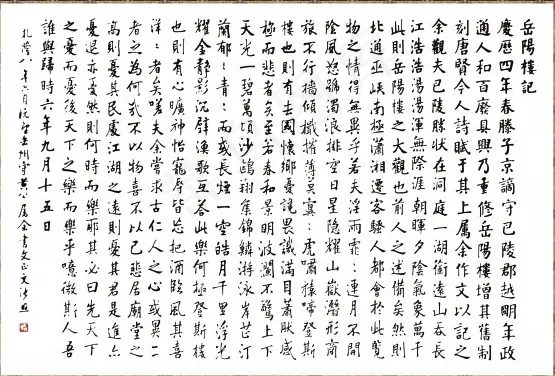 岳陽樓記
慶曆四年春滕子京謫守巴陵郡越明年政
通人和百廢具興乃重修岳陽樓增其舊制
刻唐賢今人詩賦于其上屬余作文以記之
余觀夫巴陵勝狀在洞庭一湖銜遠山吞長
江浩浩湯湯渾無際涯朝暉夕陰氣象萬千
此則岳陽樓之大觀也前人之述備矣然則
北通巫峽南極瀟湘遷客騷人都會於此覽
物之情得無異乎若夫淫雨霏：連月不開
陰風怒號濁浪排空日星隱耀山嶽潛形商
旅不行檣傾楫摧薄暮冥：虎嘯猿啼登斯
樓也則有去國懷鄉憂讒畏譏滿目蕭然感
極而悲者矣至若春和景明波瀾不驚上下
天光一碧萬頃沙鷗翔集錦鱗游泳岸芷汀
蘭郁：青：而或長煙一空皓月千里浮光
耀金靜影沉璧漁歌互答此樂何極登斯樓
也則有心曠神怡寵辱皆忘把酒臨風其喜
洋：者矣嗟夫余嘗求古仁人之心或異二
者之為何哉不以物喜不以己悲居廟堂之
高則憂其民處江湖之遠則憂其君是進亦
憂退亦憂然則何時而樂耶其必曰先天下
之憂而憂後天下之樂而樂乎噫微斯人吾
誰與歸時六年九月十五日
八年六月